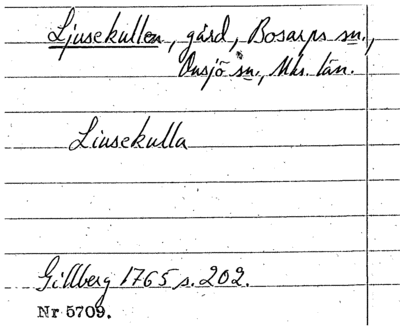 Ljusekullen, gård, Bosarps sn.,
Onsjö sn., Mhs. län.
Liusekulla
Gillberg 1765 s. 202.
Nr 5709.